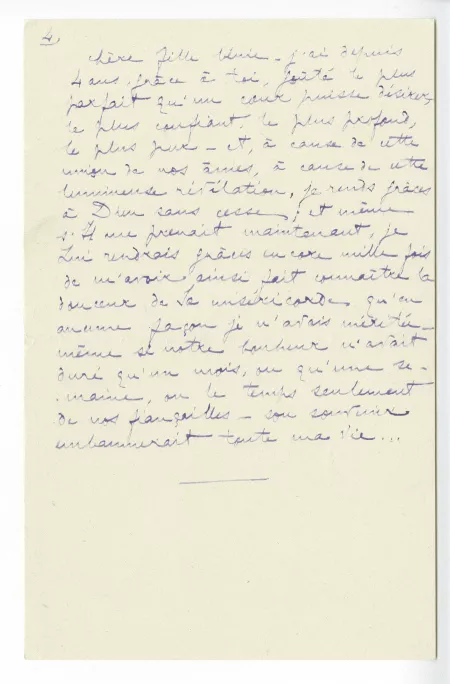 4.
chère fille bénie – j'ai depuis
4 ans, grâce à toi, goûté le plus
parfait qu'un cœur puisse désirer,
le plus confiant, le plus profond,
le plus pur – et, à cause de cette
union de nos âmes, à cause de cette
lumineuse révélation, je rends grâces
à Dieu sans cesse ; et même
s'Il me prenait maintenant, je
Lui rendrais grâces encore mille fois
de m'avoir ainsi fait connaître la
douceur de Sa miséricorde qu'en
aucune façon je n'avais méritée –
même si notre bonheur n'avait
duré qu'un mois, ou qu'une se-
-maine, ou le temps seulement
de nos fiançailles – son souvenir
embaumerait toute ma vie...